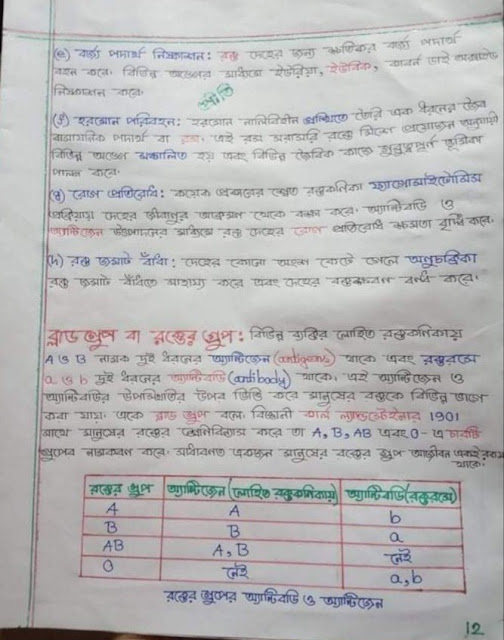 (e) বর্জ্য পদার্থ নিষ্কাশন: রক্ত দেহের জন্য ক্ষতিকর বর্জ্য পদার্থ
বহন করে। বিভিন্ন অঙ্গের মাধ্যমে ইউরিয়া, ইউরিক, কার্বন ডাই অক্সাইড
নিষ্কাশন করে।
(f) হরমোন পরিবহন: হরমোন নালিবিহীন গ্রন্থিতে তৈরি এক ধরনের জৈব
রাসায়নিক পদার্থ বা রস। এই রস সরাসরি রক্তে মিশে প্রয়োজন অনুযায়ী
বিভিন্ন অঙ্গে সঞ্চালিত হয় এবং বিভিন্ন জৈবিক কাজে গুরুত্বপূর্ণ ভূমিকা
পালন করে।
(g) রোগ প্রতিরোধ: কয়েক প্রকারের শ্বেত রক্তকনিকা ফ্যাগোসাইটোসিস
প্রক্রিয়ায় দেহকে জীবাণুর আক্রমণ থেকে রক্ষা করে। অ্যান্টিবডি ও
অ্যান্টিজেন উৎপাদনের মাধ্যমে রক্ত দেহের রোগ প্রতিরোধ ক্ষমতা বৃদ্ধি করে।
(h) রক্ত জমাট বাঁধা: দেহের কোনো অংশ কেটে গেলে অনুচক্রিকা
রক্ত জমাট বাঁধতে সাহায্য করে এবং দেহের রক্তক্ষরণ বন্ধ করে।
ব্লাড গ্রুপ বা রক্তের গ্রুপ: বিভিন্ন ব্যক্তির লোহিত রক্তকনিকায়
A ও B নামক দুই ধরনের অ্যান্টিজেন (antigens) থাকে এবং রক্তরসে
a ও b দুই ধরনের অ্যান্টিবডি (antibody) থাকে। এই অ্যান্টিজেন ও
অ্যান্টিবডির উপস্থিতির উপর ভিত্তি করে মানুষের রক্তকে বিভিন্ন ভাগে
করা যায়। একে ব্লাড গ্রুপ বলে। বিজ্ঞানী কার্ল ল্যান্ডস্টেইনার 1901
সালে মানুষের রক্তের শ্রেণিবিন্যাস করে তা A, B, AB এবং O- এ চারটি
গ্রুপের নামকরণ করে। সাধারণত একজন মানুষের রক্তের গ্রুপ আজীবন একই রকম
থাকে।
রক্তের গ্রুপ অ্যান্টিজেন (লোহিত রক্তকনিকায়) অ্যান্টিবডি (রক্তরসে)
A A b
B B a
AB A, B নেই
O নেই a, b
রক্তের গ্রুপের অ্যান্টিবডি ও অ্যান্টিজেন
12